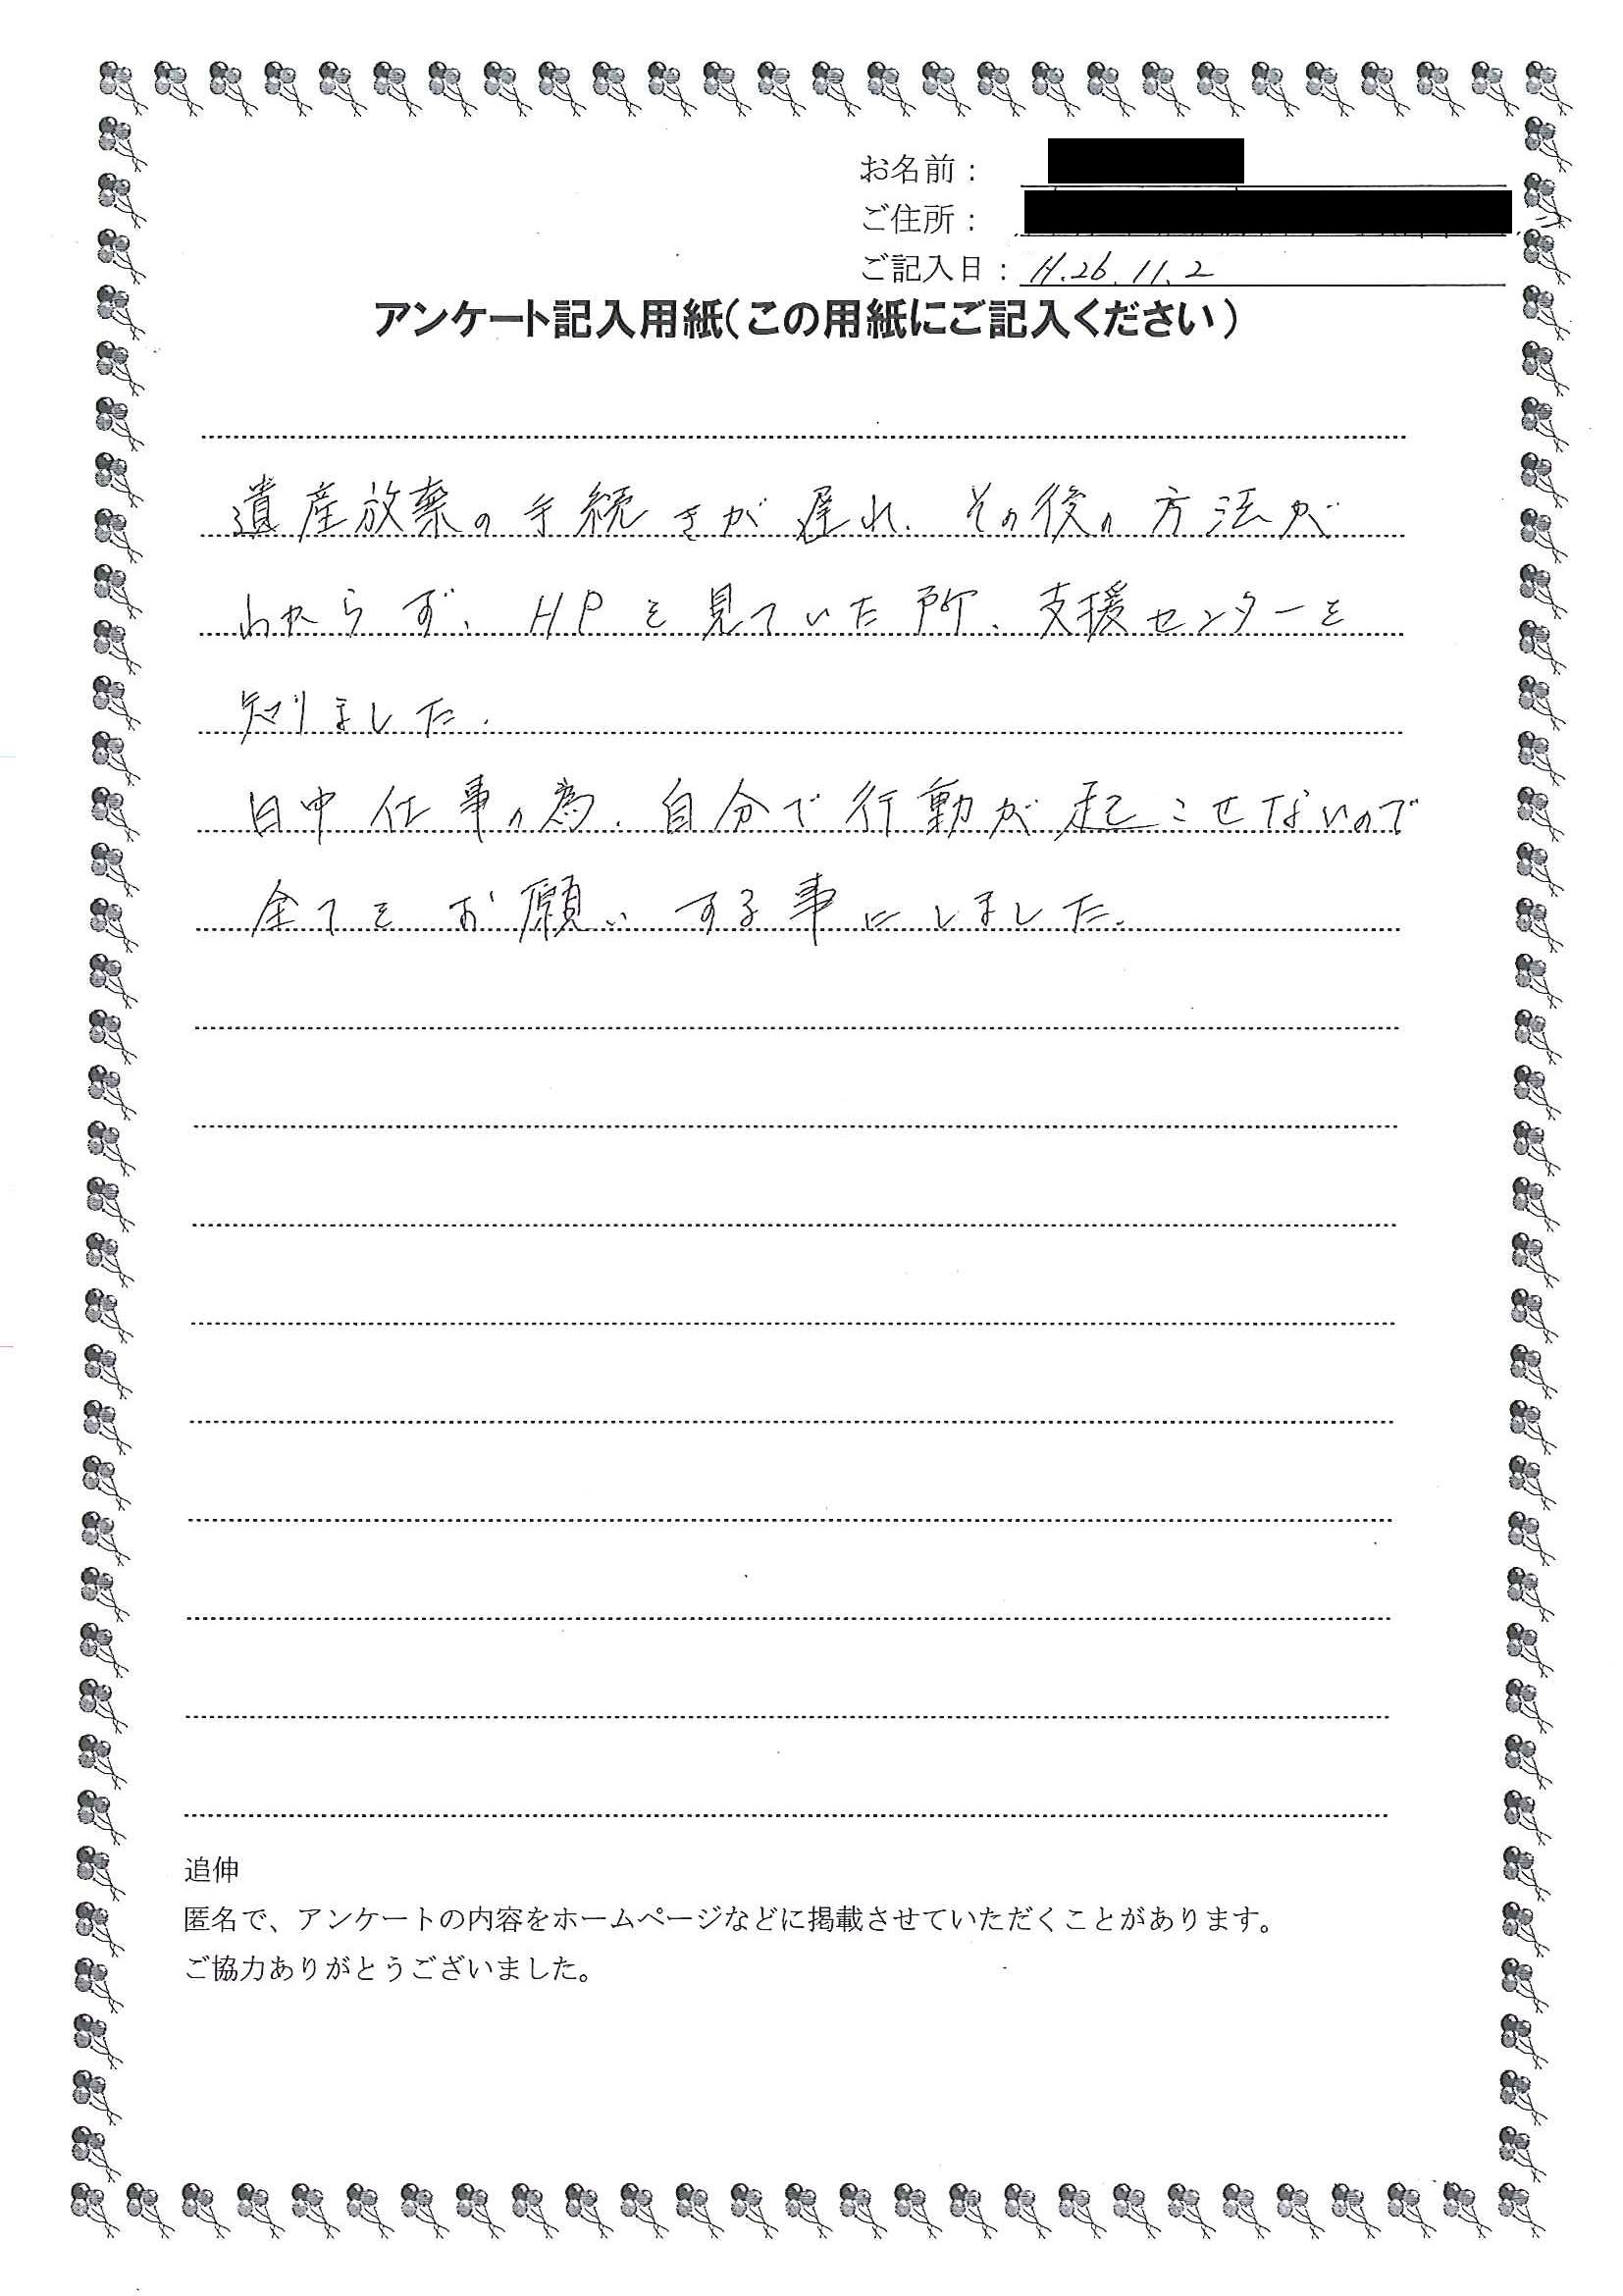 お名前：
ご住所：
ご記入日：H.26.11.2
アンケート記入用紙（この用紙にご記入ください）
遺産放棄の手続きが遅れ、その後の方法が
わからず、HPを見ていた所、支援センターを
知りました。
日中仕事の為、自分で行動が起こせないので
全てをお願いする事にしました。
追伸
匿名で、アンケートの内容をホームページなどに掲載させていただくことがあります。
ご協力ありがとうございました。